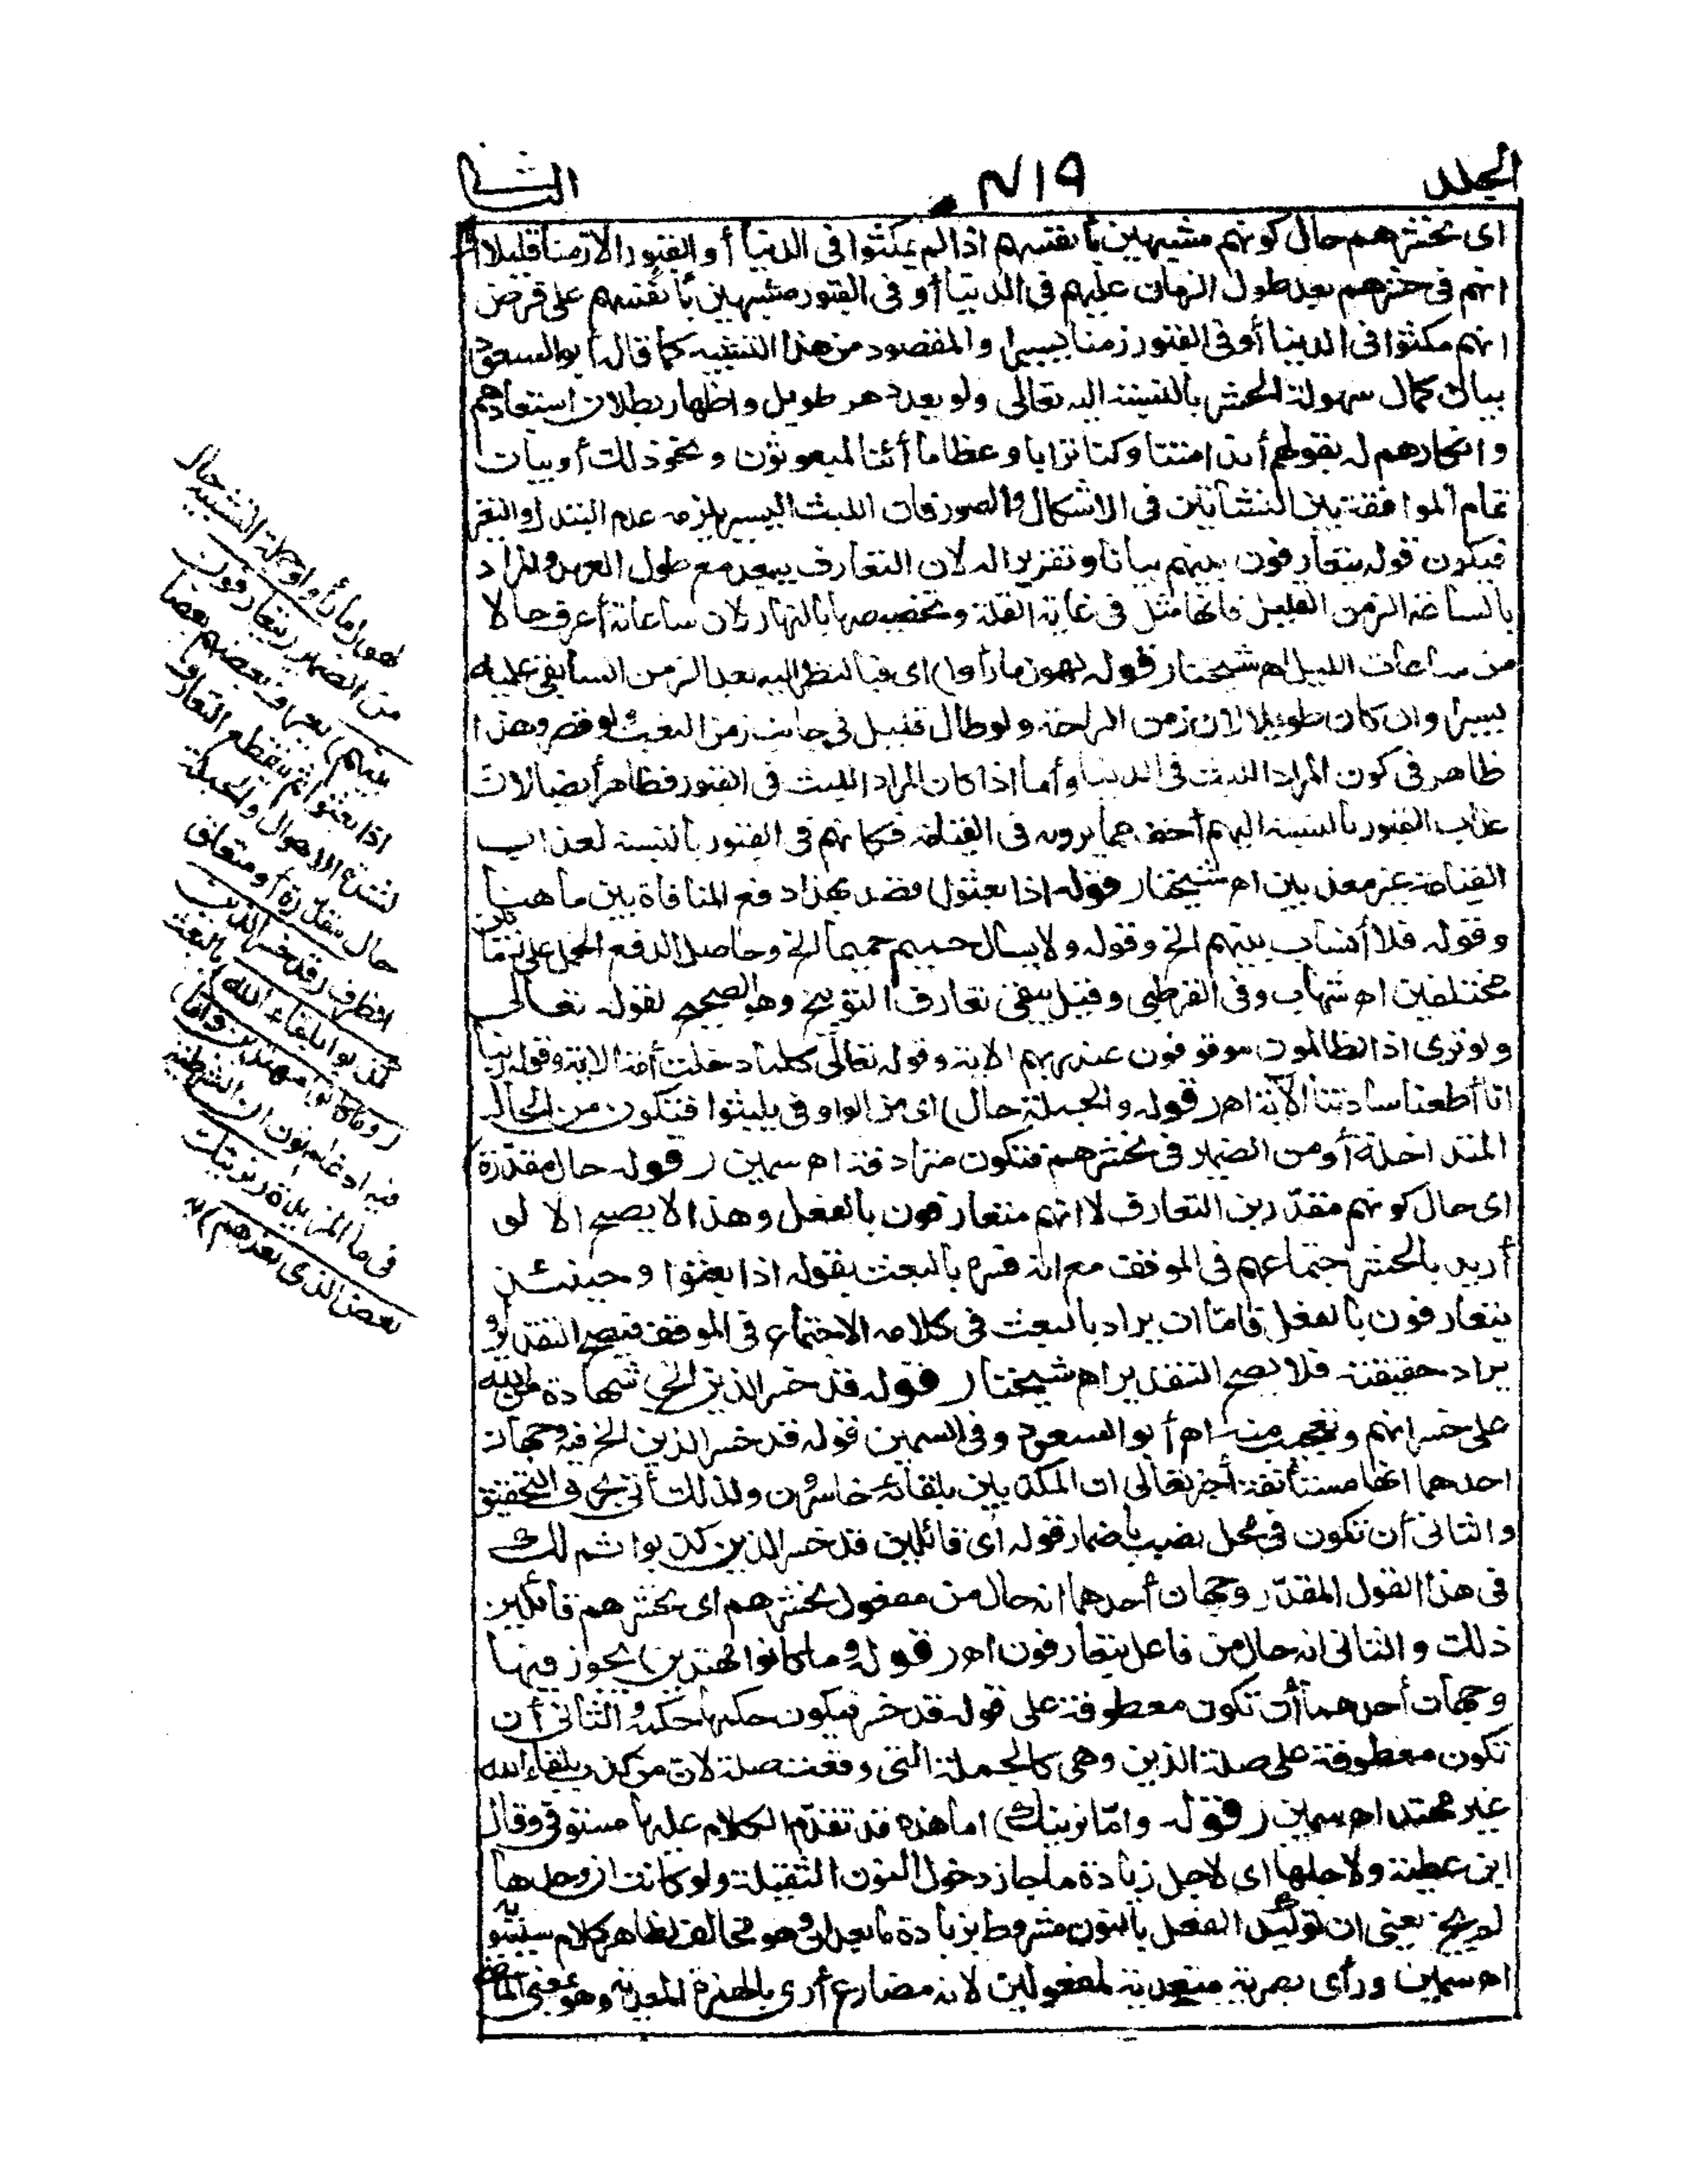 الجلد ٤١٩ الثانى
اى نحشرهم حال كونهم مشبهين بأنفسهم اذا لم يمكثوا فى الدنيا أو القبور الا زمنا قليلا أى
انهم فى حشرهم بعد طول الزمان عليهم فى الدنيا أو فى القبور مشبهين بأنفسهم على فرض
انهم مكثوا فى الدنيا أو فى القبور زمنا يسيرا والمقصود من هذا التشبيه كما قال أبو السعود
بيان كمال سهولة الحشر بالنسبة اليه تعالى ولو بعد دهر طويل واظهار بطلان استبعادهم
وانكارهم له بقولهم أئذا متنا وكنا ترابا وعظاما أئنا لمبعوثون ونحو ذلك أو بيان
تمام الموافقة بين النشأتين فى الاشكال والصور فان اللبث اليسير يلزمه عدم التبدل والتغير
فيكون قوله يتعارفون بينهم بيانا وتقريرا له لان التعارف يبعد مع طول العهد والمراد
بالساعة الزمن القليل فانها مثل فى غاية القلة وتخصيصها بالنهار لان ساعاته أعرف حالا
من ساعات الليل اه شيخنا (قوله لهول ما رأوا) اى فبالنظر اليه يعد الزمن السابق عليه
يسيرا وان كان طويلا لان زمن الراحة ولو طال قليل فى جانب زمن التعب ولو قصر وهذا
ظاهر فى كون المراد اللبث فى الدنيا وأما اذا كان المراد اللبث فى القبور فظاهر أيضا لان
عذاب القبور بالنسبة اليهم أخف مما يرونه فى القيامة فكانهم فى القبور بالنسبة لعذاب
القيامة غير معذبين اه شيخنا (قوله اذا بعثوا) قصد بهذا دفع المنافاة بين ما هنا
وقوله فلا أنساب بينهم الخ وقوله ولا يسأل حميم حميما الخ وحاصل الدفع الحمل على زمانين
مختلفين اه شهاب وفى القرطبى وقيل يبقى تعارف التوبيخ وهو الصحيح لقوله تعالى
ولو ترى اذ الظالمون موقوفون عند ربهم الاية وقوله تعالى كلما دخلت أمة الاية وقوله ربنا
انا أطعنا سادتنا الآية اه (قوله والجملة حال) اى من الواو فى يلبثوا فتكون من الحال
المتداخلة أو من الضمير فى نحشرهم فتكون مترادفة اه سمين (قوله حال مقدرة)
اى حال كونهم مقدّرين التعارف لا انهم متعارفون بالفعل وهذا لا يصح الا لو
أريد بالحشر اجتماعهم فى الموقف مع انه فسره بالبعث بقوله اذا بعثوا وحينئذ
يتعارفون بالفعل فامّا ان يراد بالبعث فى كلامه الاجتماع فى الموقف فيصح التقدير أو
يراد حقيقته فلا يصح التقدير اه شيخنا (قوله قد خسر الذين الخ) شهادة من الله
على خسرانهم وتعجيب منه اه أبو السعود وفى السمين قوله قد خسر الذين الخ فيه وجهان
احدهما انها مستأنفة أخبر تعالى ان المكذبين بلقائه خاسرون ولذلك أتى بحرف التحقيق
والثانى أن تكون فى محل نصب باضمار قوله اى قائلين قد خسر الذين كذبوا ثم لك
فى هذا القول المقدّر وجهان أحدهما انه حال من مفعول نحشرهم اى نحشرهم قائلين
ذلك والثانى انه حال من فاعل يتعارفون اه (قوله وما كانوا مهتدين) يجوز فيها
وجهان أحدهما أن تكون معطوفة على قوله قد خسر فيكون حكمها حكمه والثانى أن
تكون معطوفة على صلة الذين وهى كالجملة التى وقعت صلة لان من كذب بلقاء الله
غير مهتد اه سمين (قوله وامّا نرينك) اما هذه قد تقدّم الكلام عليها مستوفى وقال
ابن عطية ولاجلها اى لاجل زيادة ما جاز دخول النون الثقيلة ولو كانت ان وحدها
لم يجز يعنى ان توكيد الفعل بالنون مشروط بزيادة ما بعد ان وهو مخالف لظاهر كلام سيبويه
اه سمين ورأى بصرية متعدية لمفعولين لانه مضارع أرى بالهمزة المعدية وهو بمعنى الماضى
لهول ما رأوا وجملة التشبيه حال
من الضمير (يتعارفون
بينهم) يعرف بعضهم بعضا
اذا بعثوا ثم ينقطع التعارف
لشدّة الاهوال والجملة
حال مقدّرة أو متعلق
الظرف (قد خسر الذين
كذبوا بلقاء الله) بالبعث
(وما كانوا مهتدين واما)
فيه ادغام نون ان الشرطية
فى ما المزيدة (نرينك
بعض الذى نعدهم) به